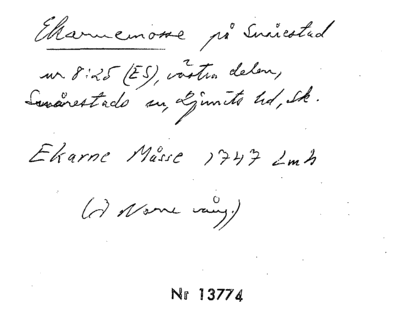 Ekarnemosse på Snårestad
nr 8:25 (ES), västra delen,
Snårestads sn, Ljunits hd, Sk.
Ekarne Måsse 1747 Lmh
(i Norre vång.)
Nr 13774